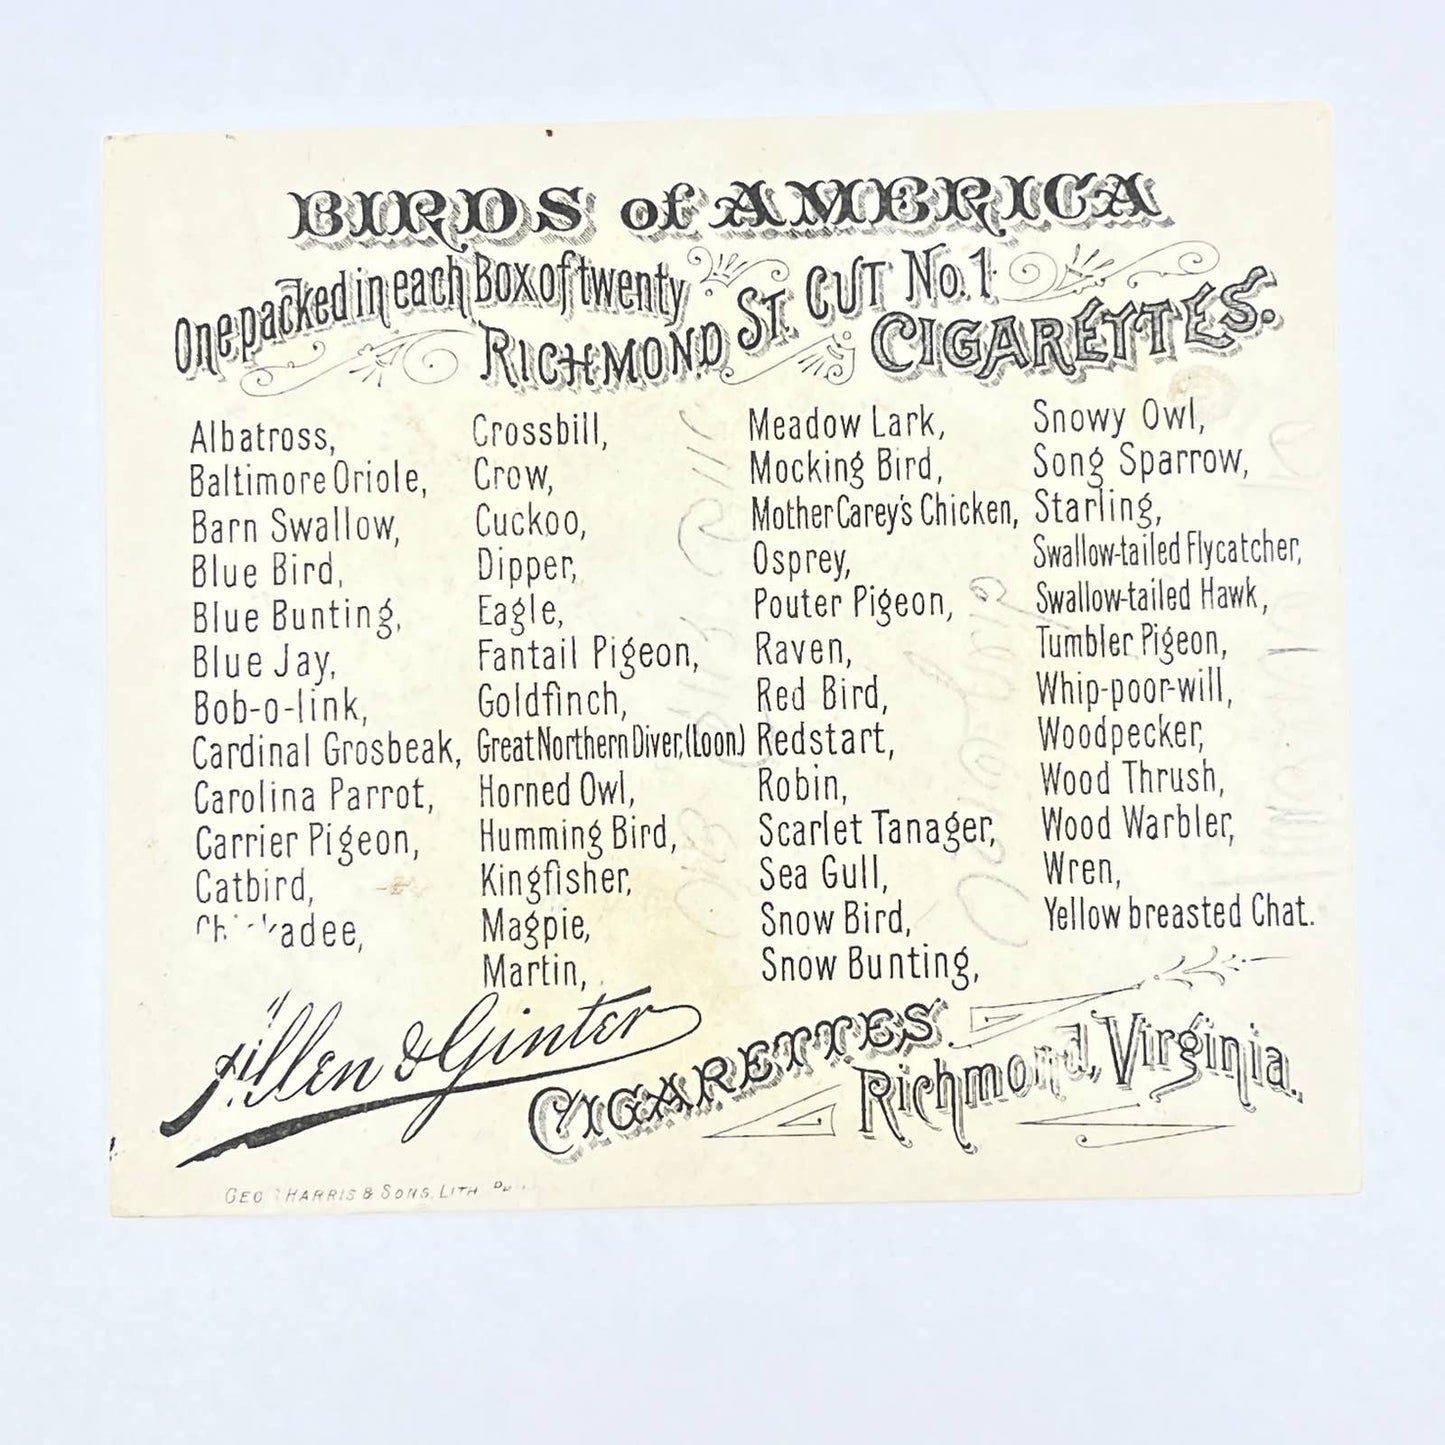 BIRDS of AMERICA
One packed in each Box of twenty
RICHMOND ST. CUT No. 1
CIGARETTES.
Albatross,
Baltimore Oriole,
Barn Swallow,
Blue Bird,
Blue Bunting,
Blue Jay,
Bob-o-link,
Cardinal Grosbeak,
Carolina Parrot,
Carrier Pigeon,
Catbird,
Chickadee,
Crossbill,
Crow,
Cuckoo,
Dipper,
Eagle,
Fantail Pigeon,
Goldfinch,
Great Northern Diver, (Loon.)
Horned Owl,
Humming Bird,
Kingfisher,
Magpie,
Martin,
Meadow Lark,
Mocking Bird,
Mother Carey's Chicken,
Osprey,
Pouter Pigeon,
Raven,
Red Bird,
Redstart,
Robin,
Scarlet Tanager,
Sea Gull,
Snow Bird,
Snow Bunting,
Snowy Owl,
Song Sparrow,
Starling,
Swallow-tailed Flycatcher,
Swallow-tailed Hawk,
Tumbler Pigeon,
Whip-poor-will,
Woodpecker,
Wood Thrush,
Wood Warbler,
Wren,
Yellow breasted Chat.
Allen & Ginter
CIGARETTES
Richmond, Virginia.
GEO HARRIS & SONS, LITH